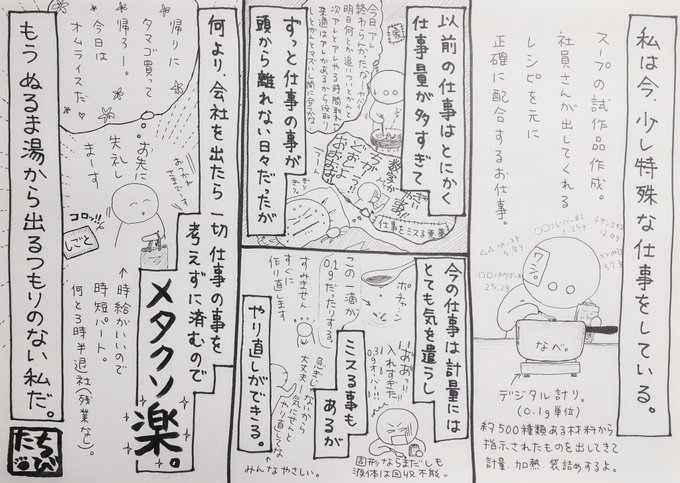 私は今、少し特殊な仕事をしている。
スープの試作品作成。
社員さんが出してくれる
レシピを元に
正確に配合するお仕事。
△△ペースト
5.8g
ワシ。
なべ。
デジタル計り。
(0.1g単位)
約500種類ある材料から
指示されたものを出してきて
計量、加熱、袋詰めするよ。
以前の仕事はとにかく
仕事量が多すぎて
仕事をミスる悪夢
ずっと仕事の事が
頭から離れない日々だったが
今の仕事は計量には
とても気を遣うし
ポチャン
この一滴が
0.1gだったりする。
ミスる事も
あるが
固形ならまだしも
液体は回収不能。
すみません
すぐに
作り直します。
急ぎじゃ
ないから
大丈夫!
気にせず
やり直してな
みんなやさしい。
やり直しができる。
何より、会社を出たら一切仕事の事を
考えずに済むので
メタクソ楽。
帰りに
タマゴ買って
帰ろー。
今日は
オムライスだ
お先に
失礼し
まーす
コロッ
しごと
↑時給がいいので
時短パート。
何と3時半退社(残業なし)。
もうぬるま湯から出るつもりのない私だ。
たちび